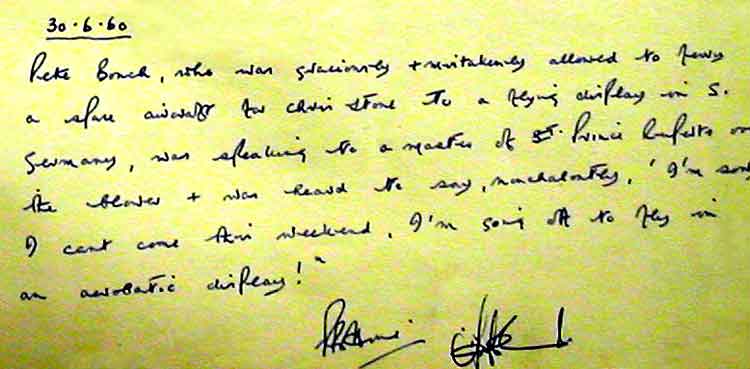 30.6.60
Pete Bouch, who was graciously + mistakenly allowed to ferry
a spare aircraft for Chris Stone to a flying display in S.
Germany, was speaking to a master of St. Prince Ruperts on
the blower + was heard to say, nonchalantly, 'I'm sorry
I cant come this weekend, I'm going off to fly in
an aerobatic display!"